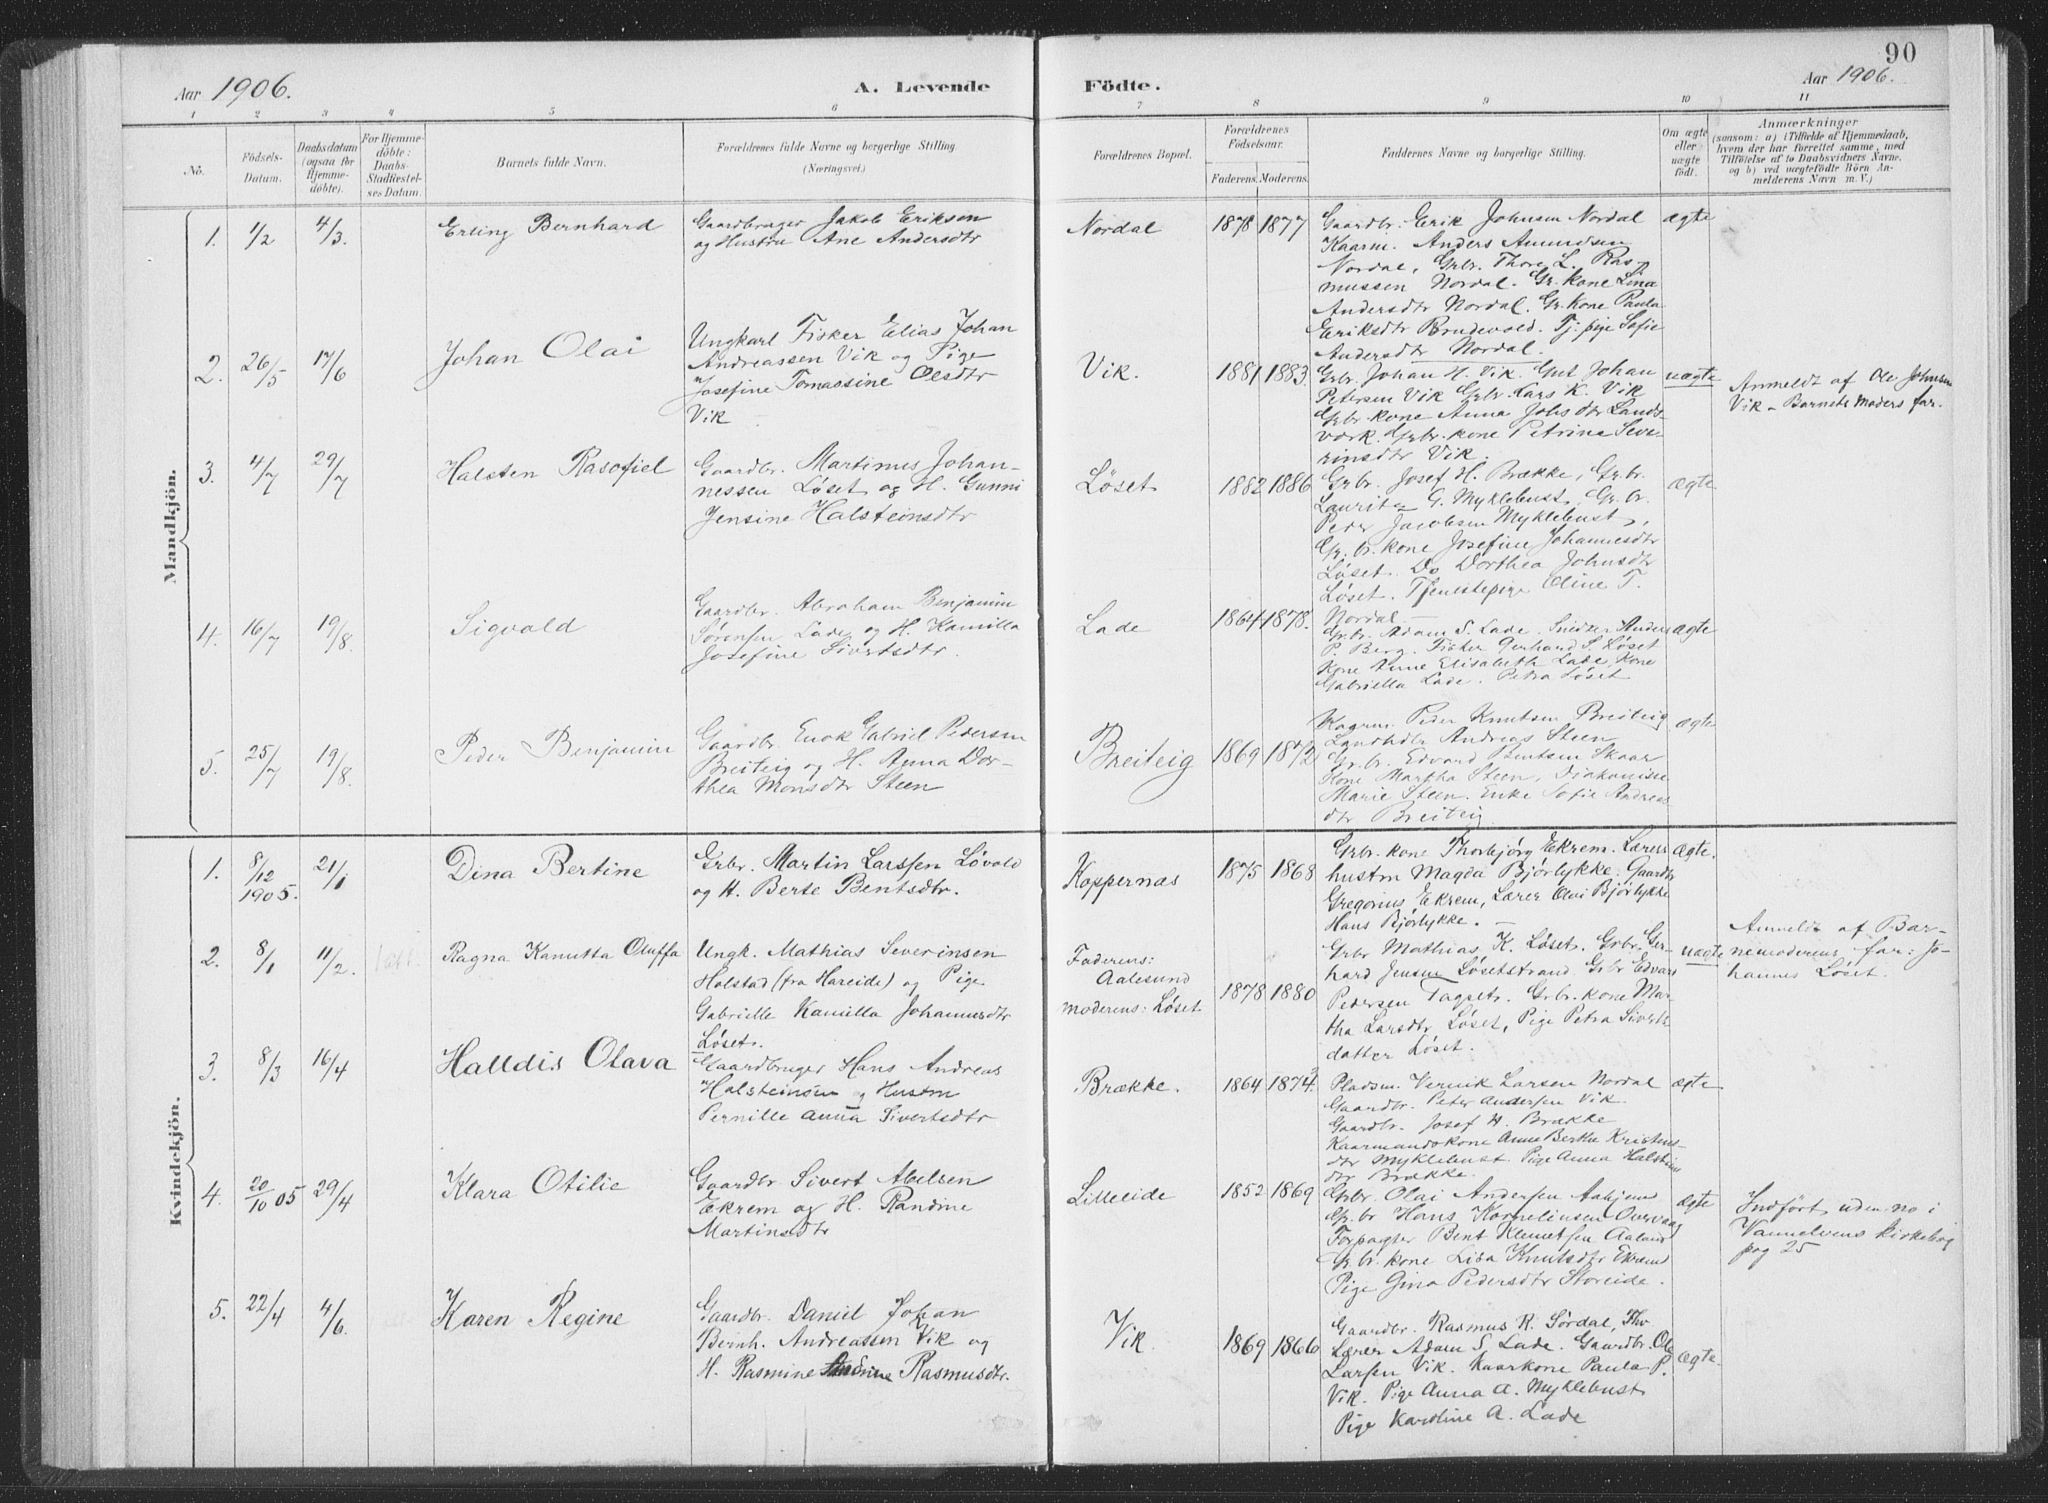 90
Aar 1906.
A. Levende
Födte.
Aar 1906.
1 2 3 4 5 6 7 8 9 10 11
No.
Födsels-
Datum.
Daabsdatum
(ogsaa för
Hjemme-
döbte).
For Hjemme-
döbte:
Daabs-
Stadfæstel-
ses Datum.
Barnets fulde Navn.
Forældrenes fulde Navne og borgerlige Stilling.
(Næringsvei.)
Forældrenes Bopæl.
Forældrenes
Födselsaar.
Faderens. Moderens.
Faddernes Navne og borgerlige Stilling.
Om ægte
eller
uægte
födt.
Anmærkninger
(saasom: a) i Tilfælde af Hjemmedaab,
hvem der har forrettet samme, med
Tilföielse af to Daabsvidners Navne,
og b) ved uægtefödte Börn An-
melderens Navn m. V.)
Mandkjön.
1. 1/2 4/3. Erling Bernhard
Gaardbruger Jakob Eriksen
og Hustru Ane Andersdtr
Nordal 1878 1877
Gaardbr. Erik Johnsen Nordal
Kaarm. Anders Amundsen
Nordal, Grbr. Thore L. Ras-
mussen Nordal. Gr. kone Lina
Andersdtr Nordal. Gr. kone Paula
Eriksdtr Brudevold. Tj. pige Sofie
Andersdtr Nordal.
ægte
2. 26/5 17/6 Johan Olai
Ungkarl Fisker Elias Johan
Andreassen Vik og Pige
Josefine Tomassine Olsdtr
Vik
Vik. 1881 1883.
Grbr. Johan H. Vik. Gut Johan
Petersen Vik Grbr. Lars K. Vik
Grbr. kone Anna Johs dtr Lands-
værk. Grbr. kone Petrina Seve-
rinsdtr Vik.
uægte
Anmeldt af Ole Johnsen
Vik - Barnets Moders far.
3. 4/7 29/7 Halsten Rasofiel
Gaardbr. Martinus Johan-
nessen Løset og H. Gunni
Jensine Halsteinsdtr
Løset 1882 1886
Grbr. Josef H. Brække, Gr. br.
Laurits G. Myklebust, Gr. br.
Peder Jacobsen Myklebust,
Gr. br. kone Josefine Johannesdtr
Løset. Do Dorthea Johnsdtr
Løset. Tjenestepige Oline T.
Nordal
ægte
4. 16/7 19/8. Sigvald
Gaardbr. Abraham Benjamin
Sørensen Lade og H. Kamilla
Josefine Sivertsdtr.
Lade 1864 1878.
Gr. br. Adam S. Lade. Snedker Anders
P. Berg. Fisker Gerhard S. Løset
Kone Anne Elisabeth Lade, Kone
Gabriella Lade. Petra Løset
ægte
5. 25/7 19/8. Peder Benjamin
Gaardbr. Enok Gabriel Pedersen
Breiteig og H. Anna Dor-
thea Monsdtr Steen
Breiteig 1869 1872
Kaarm. Peder Knutsen Breiteig
Landhdlr Andreas Steen
Gr. br. Edvard Bentsen Skaar
Kone Martha Steen, Diakonisse
Marie Steen. Enke Sofie Andreas
dtr Breiteig.
ægte
Kvindekjön.
1. 8/12 1905. 21/1 Dina Bertine
Grbr. Martin Larssen Løvold
og H. Berte Bentsdtr.
Koppernæs 1875 1868
Grbr. kone Thorbjørg Ekrem. Lærer
hustru Magda Bjørlykke. Gaardbr
Gregorius Ekrem, Lærer Olai Bjørlykke
Hans Bjørlykke.
Ægte.
2. 8/1 11/2. Ragna Kanutta Oluffa
Ungk. Mathias Severinsen
Holstad (fra Hareide) og Pige
Gabrielle Kamilla Johannesdtr
Løset.
Faderens:
Aalesund
Moderens: Løset
1878 1880
Grbr Mathias K. Løset. Grbr. Ger-
hard Jensen Løsetstrand Grbr Edvard
Pedersen Tagsetr. Grbr. kone Mar-
tha Larsdtr Løset, Pige Petra Siverts
datter Løset.
uægte
Anmeldt af Bar-
nemoderens far: Jo-
hannes Løset.
3. 8/3 16/4 Halldis Olava
Gaardbruger Hans Andreas
Halsteinsen og Hustru
Pernille Anna Sivertsdtr
Brække. 1864 1874.
Pladsm. Larsen Nordal
Gaardbr. Peter Andersen Vik
Gaardbr. Josef H. Brække
Kaarmandskone Anne Berthe Kristens-
dtr Myklebust. Pige Anna Halsteins
dtr Brække.
ægte
4. 20/10 05 29/4 Klara Otilie
Gaardbr Sivert Abelsen
Ekrem og H. Randine
Martinsdtr
Lilleeide 1852 1869
Grbr. Olai Andersen Aahjem
Gr. br Hans Kornelinsen Overvaag
Forpagter Bent Klemetsen Aaland
Gr. br. kone Lisa Knutsdtr Ekrem
Pige Gina Pedersdtr Storeide.
ægte
Indført uden no i
Vannelvens kirkebog
pag 25
5. 22/4 4/6. Karen Regine
Gaardbr. Daniel Johan
Bernh. Andreassen Vik og
H. Rasmine Andrine Rasmusdtr.
Vik 1869 1866
Gaardbr. Rasmus R. Sørdal,
Lærer Adam S. Lade. Gaardbr. Ole
Larsen Vik. Kaarkone Paula P.
Vik. Pige Anna A. Myklebust
Pige Karoline A. Lade
ægte